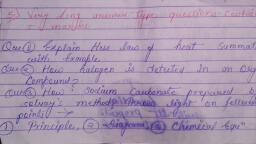 5) Very long answer type questions
= marks
Que ① Explain Hess law of heat Summat
with Example.
Que ② How halogen is detected in an Org
Compound?
Que ③ How Sodium Carbonate prepared b
Solvay's method light on followin
points
① Principle, ② Diagram ③ Chemical Eqn